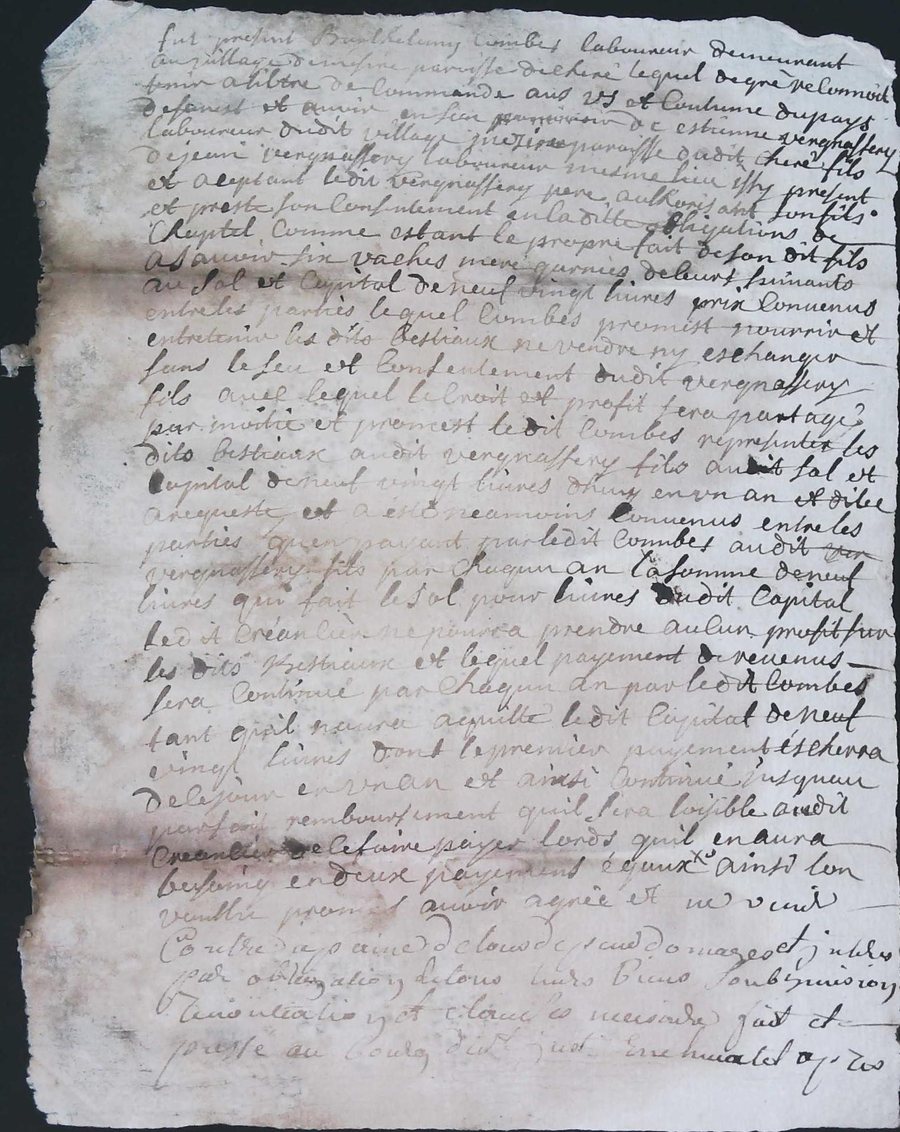 fut present Barthelemy Combes laboureur demeurant
au village de mesme paroisse de cheré lequel de gré reconnoit
tenir a titre de Commande aux vs et Coutume du pays
de forest et avoir en son pouvoir de estienne vergnassery
laboureur dudit village paroisse dudit cheré fils
de jean vergnassery laboureur mesme lieu issy present
et aceptant ledit vergnassery pere authorisant son fils
et preste son Consentement en la ditte obligations de
Cheptel Comme estant le propre fait de son dit fils
asavoir six vaches mere garnies de leurs suivants
au sol et Capital de neuf vingt livres prix Convenus
entre les parties lequel Combes promest nourrir et
entretenir les dits bestiaux ne vendre ny eschanger
sans le seu et Consentement dudit vergnassery
fils avec lequel le Croit et profit sera partagé
par moitié et promest le dit Combes representer les
dits bestiaux audit vergnassery fils audit sol et
Capital de neuf vingt livres dhuy en vn an et dilec
a requeste et a esté neamoins Convenus entre les
parties quen payant par ledit Combes audit ver
vergnassery fils par chaqun an la somme de neuf
livres qui fait le sol pour livres dudit Capital
ledit Créancier ne pourra prendre aucun profit sur
les dits Bestiaux et lequel payement de revenus
sera Continué par Chaqun an par le dit Combes
tant quil naura aquitté le dit Capital de neuf
vingt livres dont le premier payement éscherra
de le jour en vn an et ainsi Continué jusquau
parfait remboursement quil sera loisible audit
Creancier de le faire payer lords quil en aura
besoing en deux payemens égaux ainsi lon
voullu promis avoir agrée et ne venir
Contre a paine de tous depend domages et intrs
par obligation de tous leurs biens soubzmission
renontiation et clauses necessaire fait et
passé au bourg apres